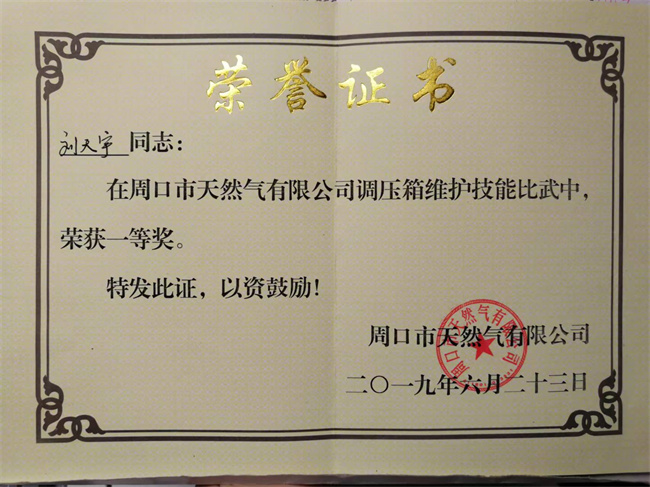 荣誉证书
刘天宇同志：
在周口市天然气有限公司调压箱维护技能比武中，
荣获一等奖。
特发此证，以资鼓励！
周口市天然气有限公司
二〇一九年六月二十三日
周口市天然气有限公司